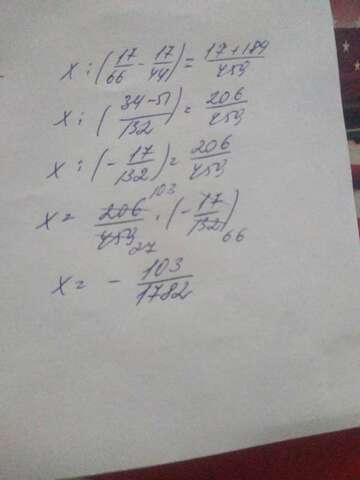 x : (17/66 - 17/44) = 17+189/459
x : (34-51/132) = 206/459
x : (- 17/132) = 206/459
103
x = 206/459 · (- 17/132)
27 66
x = - 103/1782